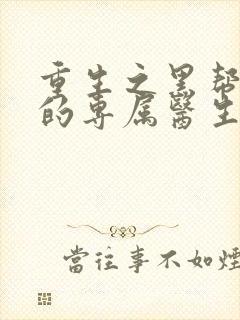 重生之黑帮
的专属醫生
當往事不如煙